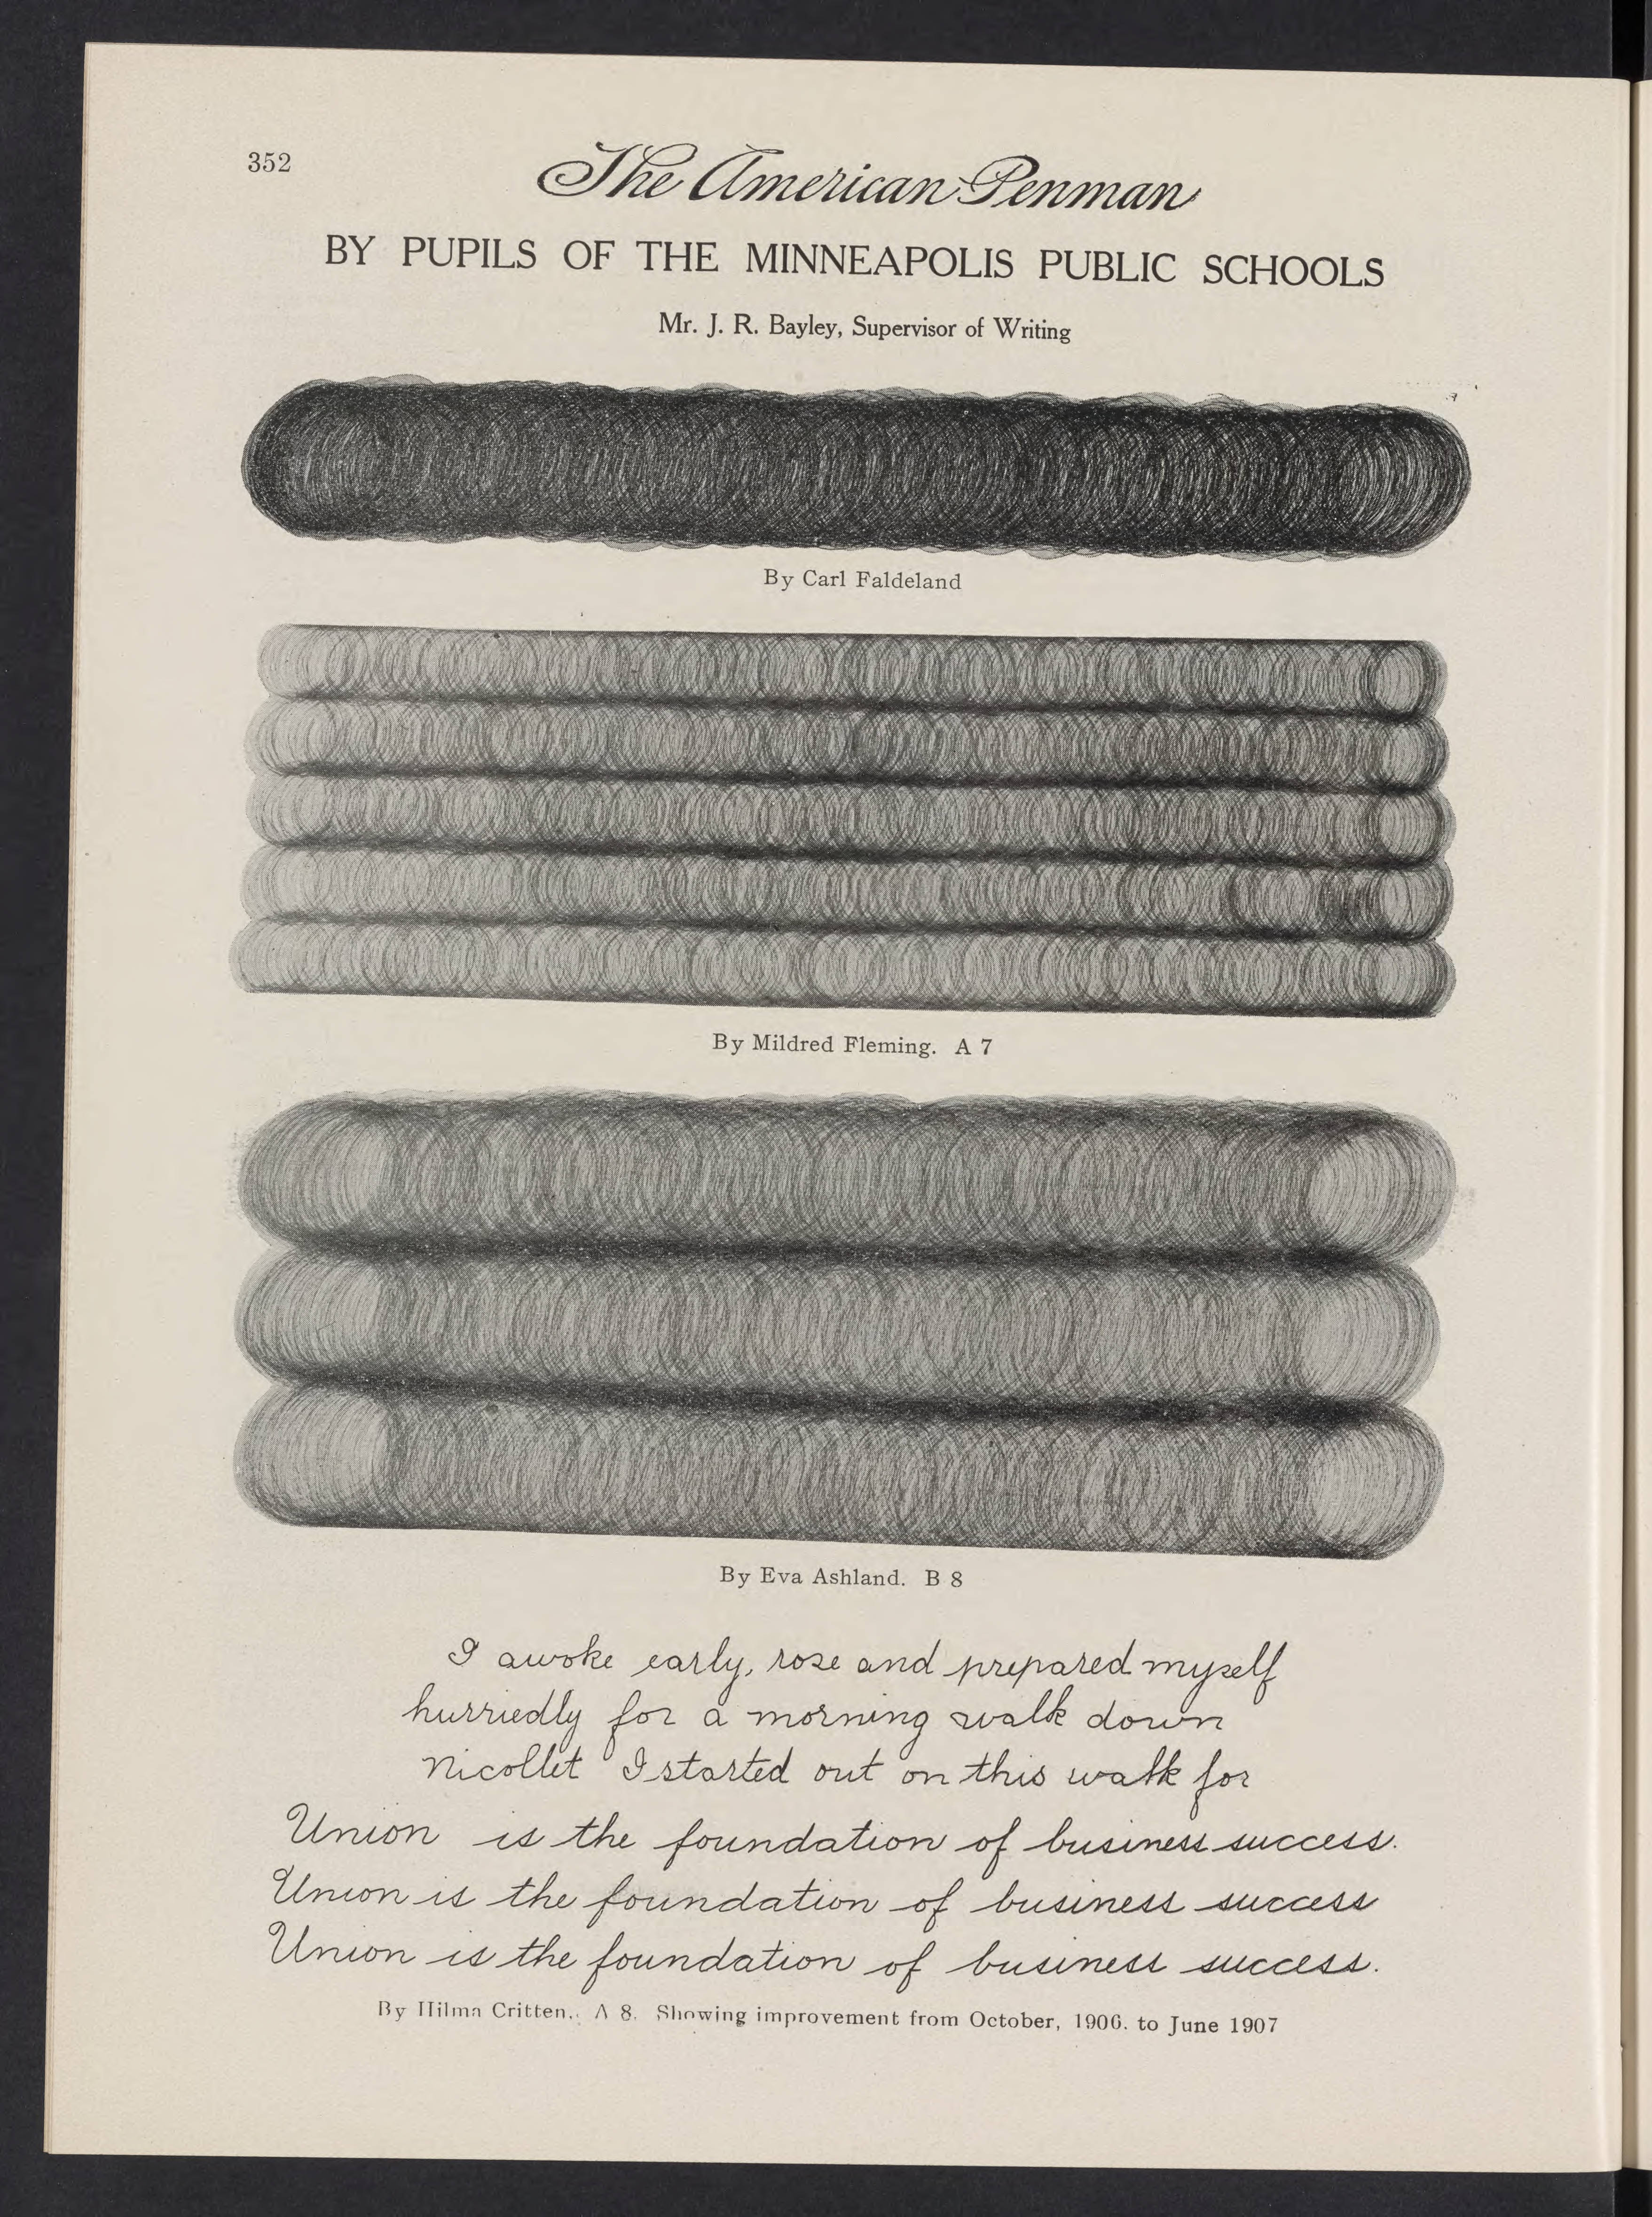 352
The American Penman
BY PUPILS OF THE MINNEAPOLIS PUBLIC SCHOOLS
Mr. J. R. Bayley, Supervisor of Writing
By Carl Faldeland
By Mildred Fleming. A 7
By Eva Ashland. B 8
I awoke early, rose and prepared myself
hurriedly for a morning walk down
Nicollet I started out on this walk for
Union is the foundation of business success.
Union is the foundation of business success
Union is the foundation of business success.
By Hilma Critten. A 8. Showing improvement from October, 1906. to June 1907